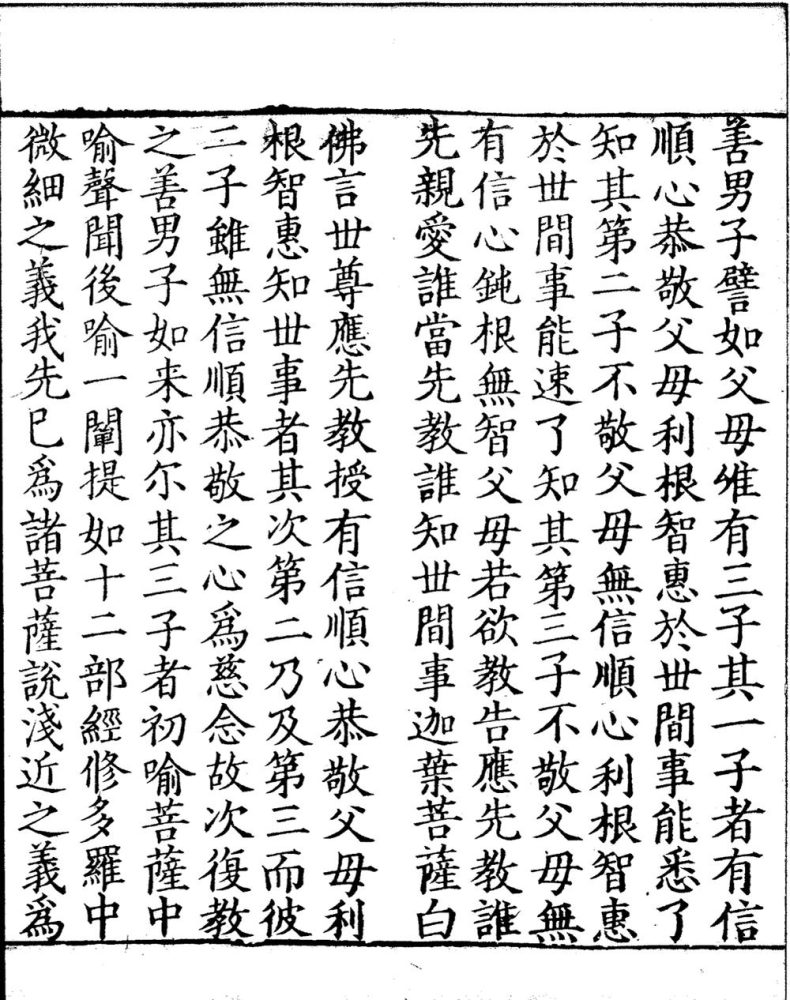 善男子譬如父母唯有三子其一子者有信
順心恭敬父母利根智惠於丗間事能悉了
知其第二子不敬父母無信順心利根智惠
於丗間事能速了知其第三子不敬父母無
有信心鈍根無智父母若欲教告應先教誰
先親愛誰當先教誰知丗間事迦葉菩薩白
佛言丗尊應先教授有信順心恭敬父母利
根智惠知丗事者其次第二乃及第三而彼
二子雖無信順恭敬之心爲慈念故次復教
之善男子如来亦尓其三子者初喻菩薩中
喻聲聞後喻一闡提如十二部經修多羅中
微細之義我先已爲諸菩薩說淺近之義爲